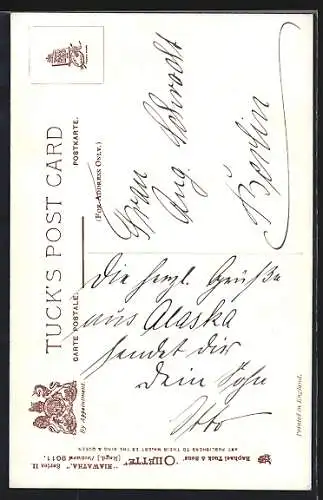 TUCK'S POST CARD
CARTE POSTALE.
POSTKARTE.
(FOR ADDRESS ONLY.)
Frau
Aug. Schrodt
Berlin
Die herzl. Grüße
aus Alaska
sendet dir
dein Sohn
Otto
By Appointment.
Raphael Tuck & Sons' "OILETTE"
[Regd.] Postcard 9011.
"HIAWATHA." Series II.
ART PUBLISHERS TO THEIR MAJESTIES THE KING & QUEEN.
Printed in England.